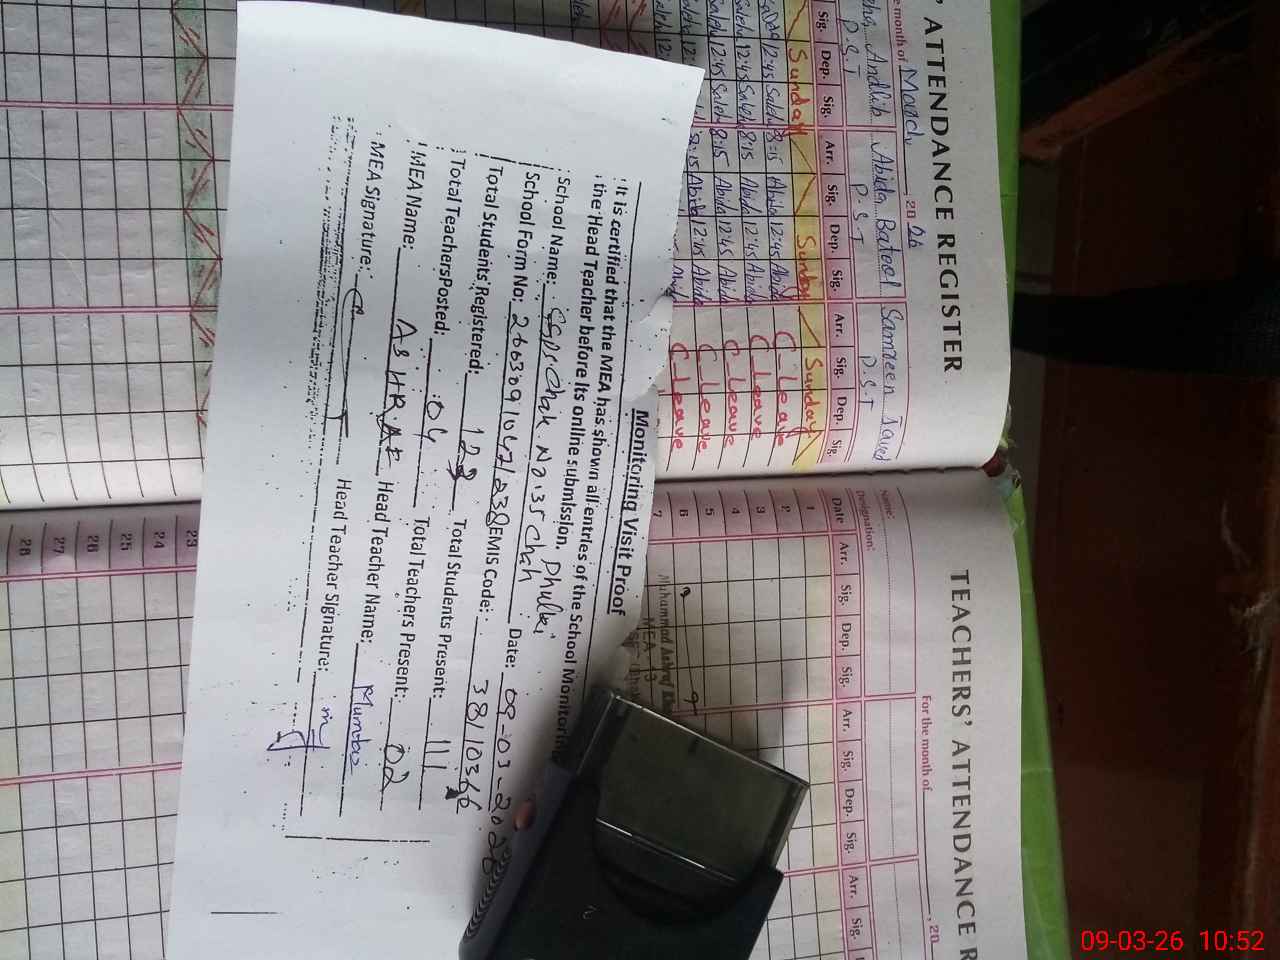 ' ATTENDANCE REGISTER
e month of March 20 26
Andlib Abida Batool Samreen Javed
P.S.T P.S.T P.S.T
Sig. Dep. Sig. Arr. Sig. Dep. Sig. Arr. Sig. Dep. Sig.
Sunday Sunday Sunday
12:45 Saleha 8:15 Abida 12:45 Abida C-Leave
Saleha 12:45 Saleha 8:15 Abida 12:45 Abida C-Leave
Saleha 12:45 Saleha 8:15 Abida 12:45 Abida C-Leave
Saleha 12:45 Saleha 8:15 Abida 12:45 Abida C-Leave
8:15 Abida 12:45 Abida C-Leave
TEACHERS' ATTENDANCE R
For the month of , 20
Name:
Designation:
Date Arr. Sig. Dep. Sig. Arr. Sig. Dep. Sig. Arr. Sig.
1
2
3
4
5
6
7
Muhammad
MEA 13
23
24
25
26
27
28
Monitoring Visit Proof
It is certified that the MEA has shown all entries of the School Monitoring
the Head Teacher before its online submission.
School Name: Chak No 35 Chah Phulki
School Form No: Date: 09-03-2026
Total Students Registered: 123 EMIS Code: 38110366
Total Teachers Posted: 04 Total Students Present: 111
MEA Name: ASHRAF Total Teachers Present: 02
MEA Signature: Head Teacher Name: Mumtaz
Head Teacher Signature:
09-03-26 10:52